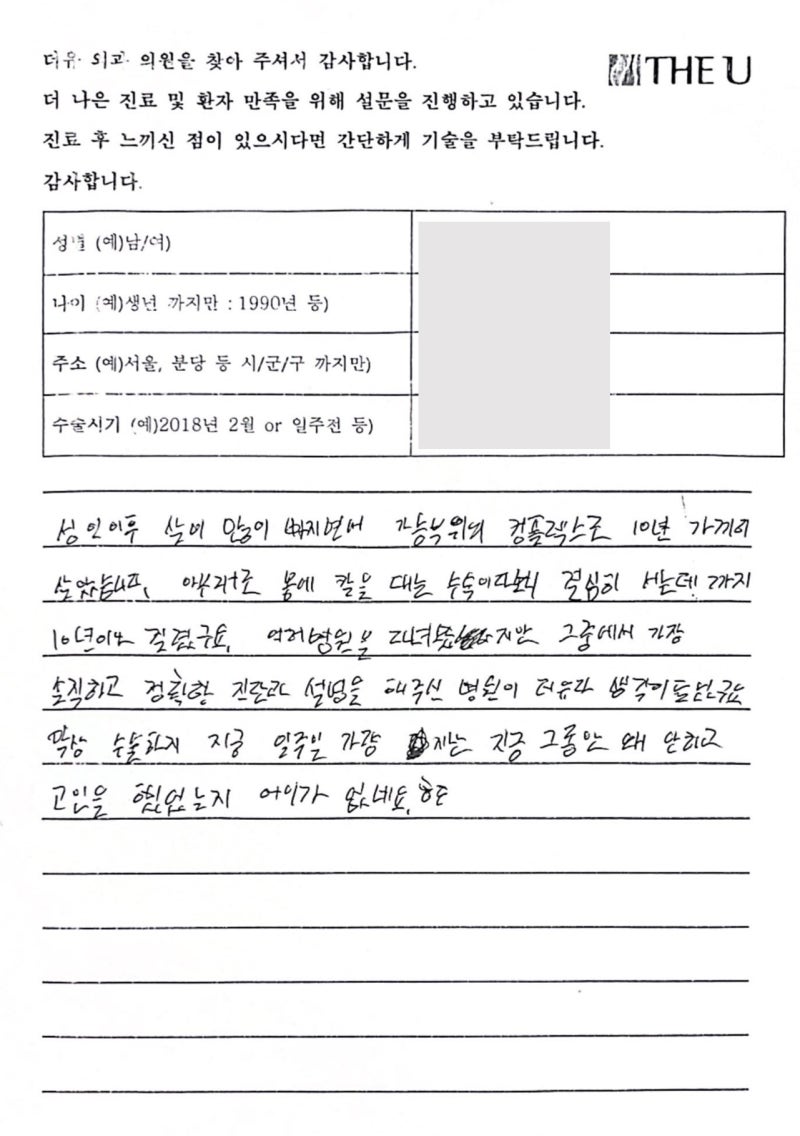 더유 외과 의원을 찾아 주셔서 감사합니다.
THE U
더 나은 진료 및 환자 만족을 위해 설문을 진행하고 있습니다.
진료 후 느끼신 점이 있으시다면 간단하게 기술을 부탁드립니다.
감사합니다.
성별 (예)남/여)
나이 (예)생년 까지만 : 1990년 등)
주소 (예)서울, 분당 등 시/군/구 까지만)
수술시기 (예)2018년 2월 or 일주전 등)
성인이후 살이 많이 빠지면서 가슴부위의 컴플렉스로 10년 가까이
살았습니다. 아무래도 몸에 칼을 대는 수술이다보니 결심이 서는데 까지
10년이나 걸렸구요. 여러병원을 다녀봤지만 그중에서 가장
솔직하고 정확한 진단과 설명을 해주신 병원이 더유다 생각이 들었구요
막상 수술한지 지금 일주일 가량 지금 그동안 왜 안하고
고민을 했었는지 어이가 없네요.